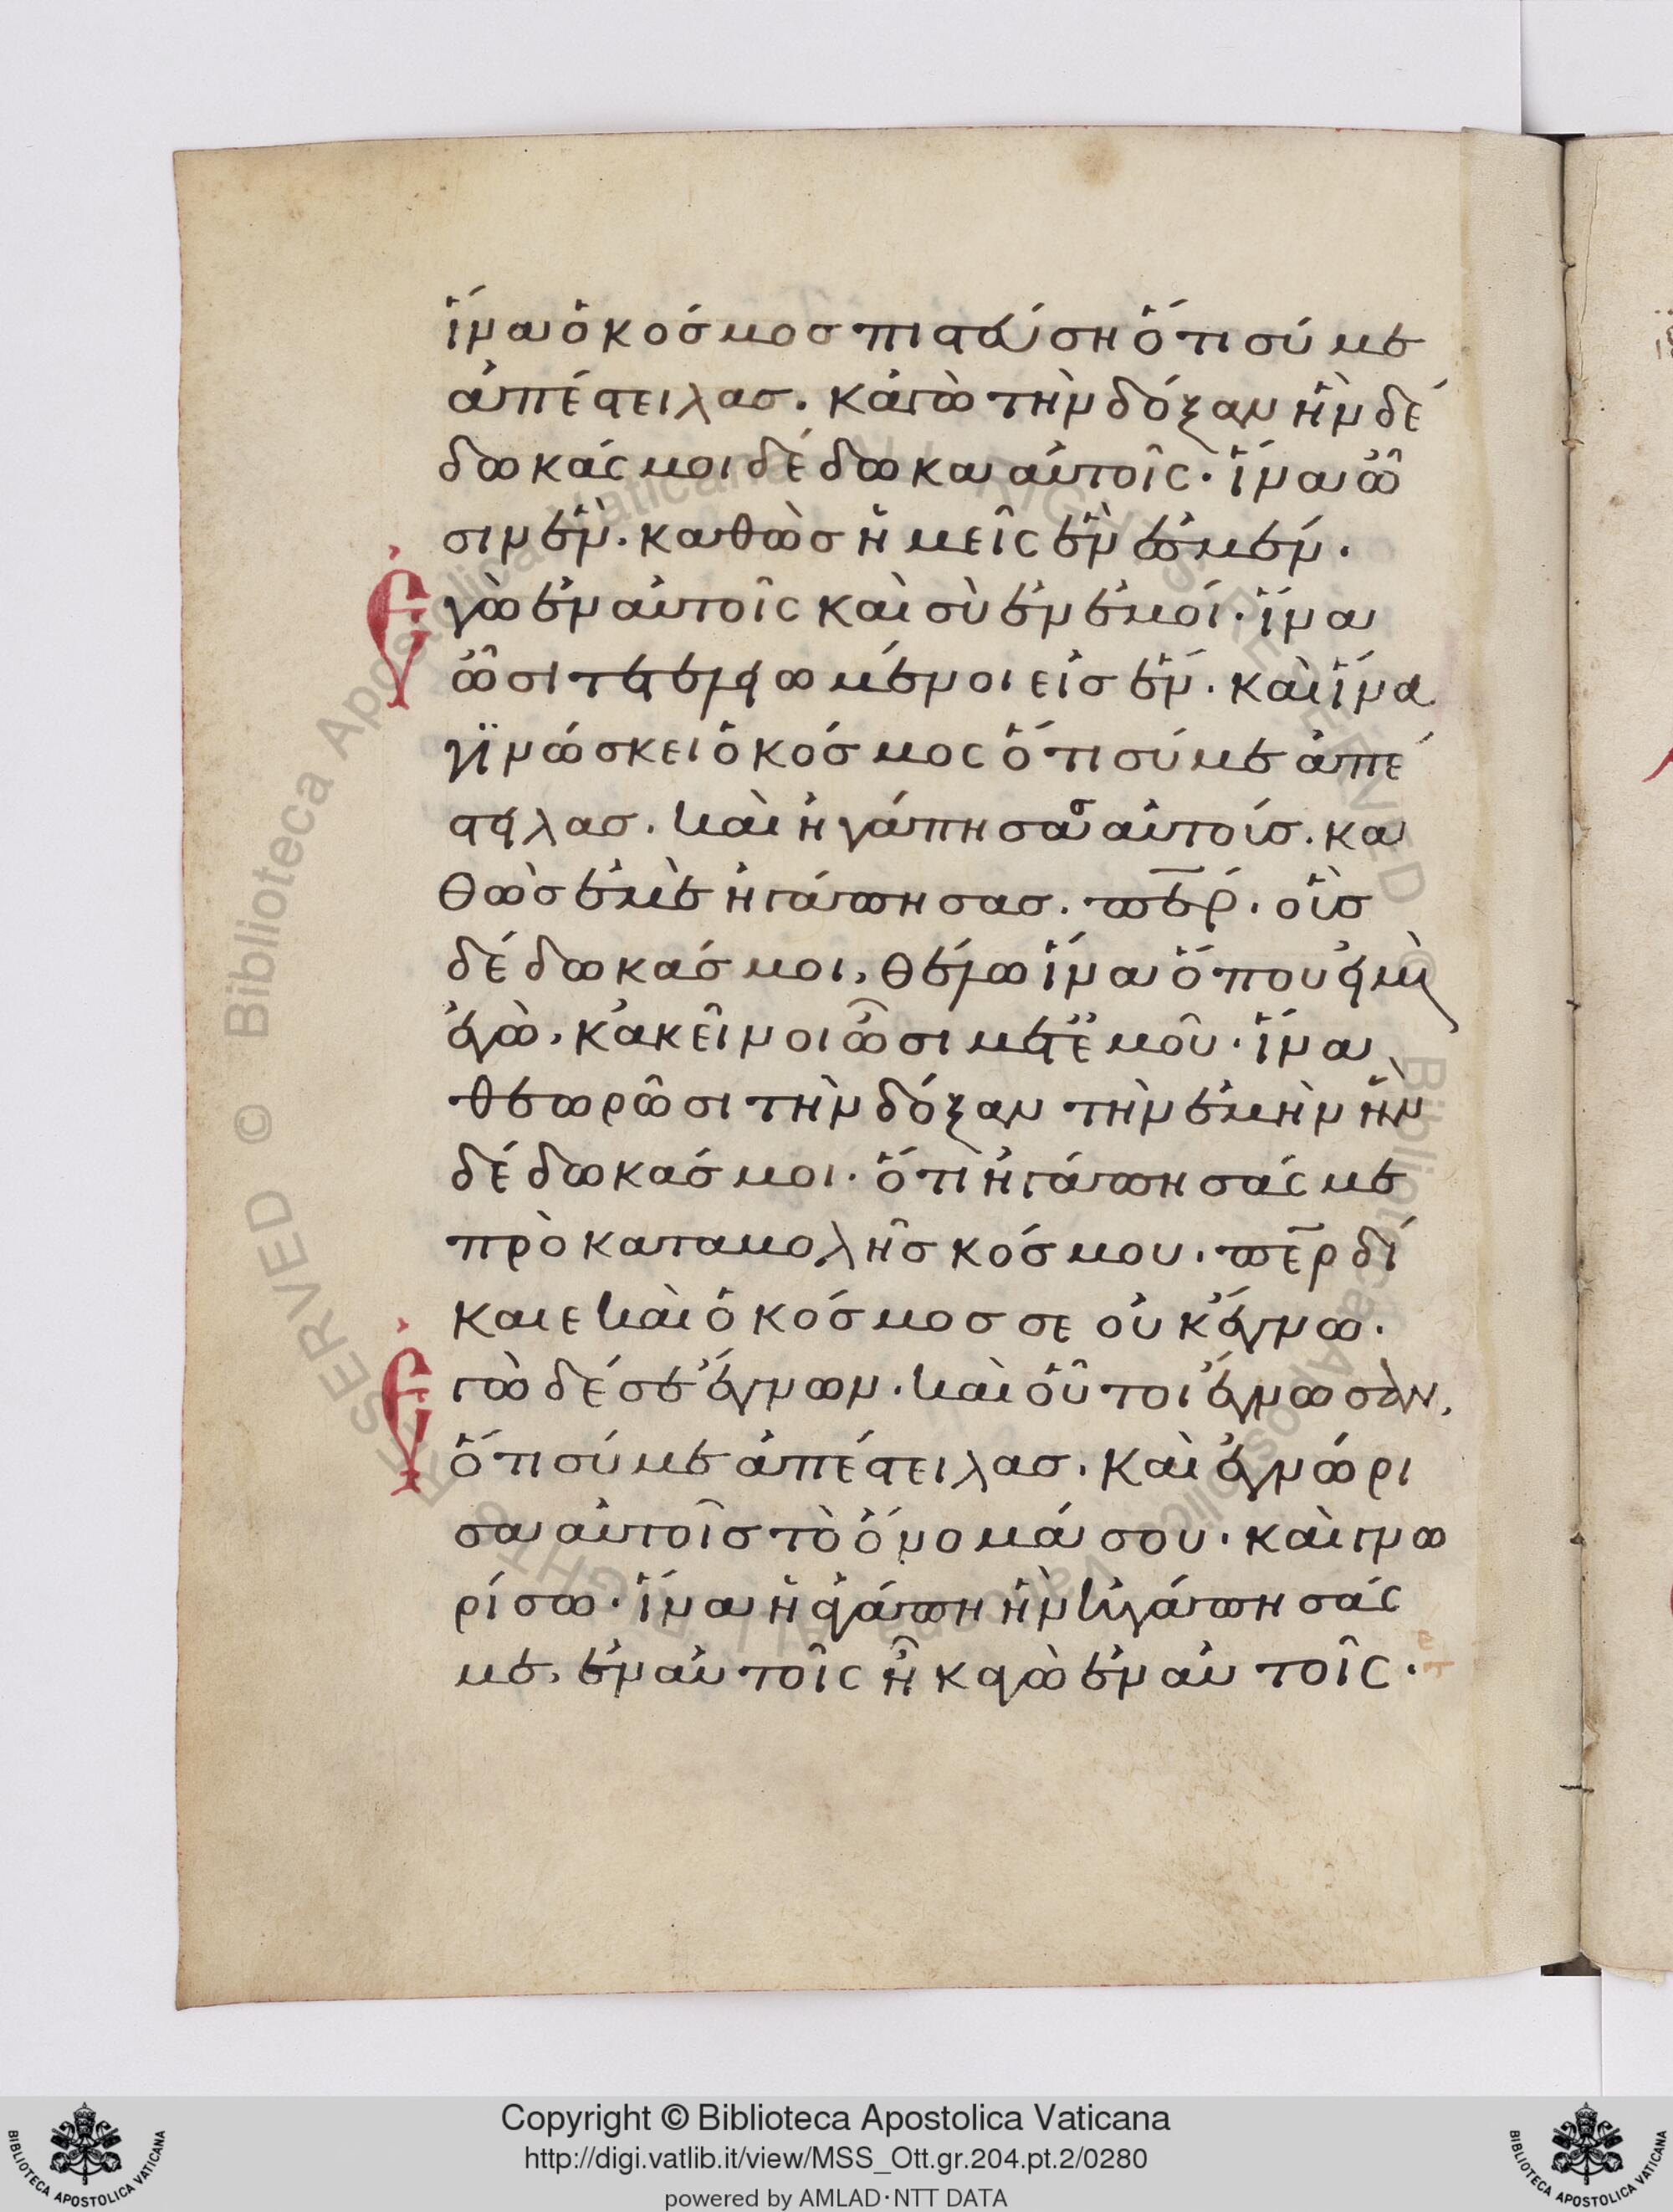 ἵνα ὁ κόσμοσ πιστεύση ὅτι σύ με
ἀπέστειλασ. κἀγὼ τὴν δόξαν ἣν δέ
δωκάς μοι δέδωκα αὐτοῖς· ἵνα ὦ
σιν ἓν. καθὼσ ἡμεῖς ἓν ἐσμέν.
Ἐγὼ ἐν αὐτοῖς καὶ σὺ ἐν ἐμοί· ἵνα
ὦσι τετελειωμένοι εἰσ ἕν. καὶ ἵνα
γϊνώσκει ὁ κόσμος ὅτι σύ με ἀπέ
στειλασ. καὶ ἠγάπησασ αὐτούσ. κα
θὼσ ἐμὲ ἠγάπησασ. περ. οὓσ
δέδωκάσ μοι, θέλω ἵνα ὅπου εἰμὶ
ἐγὼ, κἀκεῖνοι ὦσι μετ ἐμοῦ· ἵνα
θεωρῶσι τὴν δόξαν τὴν ἐμὴν ἣν
δέδωκάσ μοι. ὅτι ἠγάπησάς με
πρὸ καταβολῆσ κόσμου. περ δί
καιε καὶ ὁ κόσμοσ σε οὐκ ἔγνω.
Ἐγὼ δέ σε ἔγνων. καὶ οὗτοι ἔγνωσαν,
ὅτι σύ με ἀπέστειλασ. καὶ ἐγνώρι
σα αὐτοῖσ τὸ ὄνομά σου. καὶ γνω
ρίσω· ἵνα ἡ ἀγάπη ἣν ἠγάπησάς
με, ἐν αὐτοῖς ἦ κἀγὼ ἐν αὐτοῖς.
Copyright © Biblioteca Apostolica Vaticana
http://digi.vatlib.it/view/MSS_Ott.gr.204.pt.2/0280
powered by AMLAD·NTT DATA
BIBLIOTECA APOSTOLICA VATICANA
BIBLIOTECA APOSTOLICA VATICANA